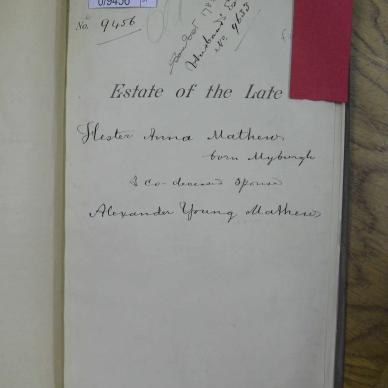 0/9456
No. 9456
Husband's
No. 9633
Estate of the Late
Hester Anna Mathews
born Myburgh
& co-deceased spouse
Alexander Young Mathews